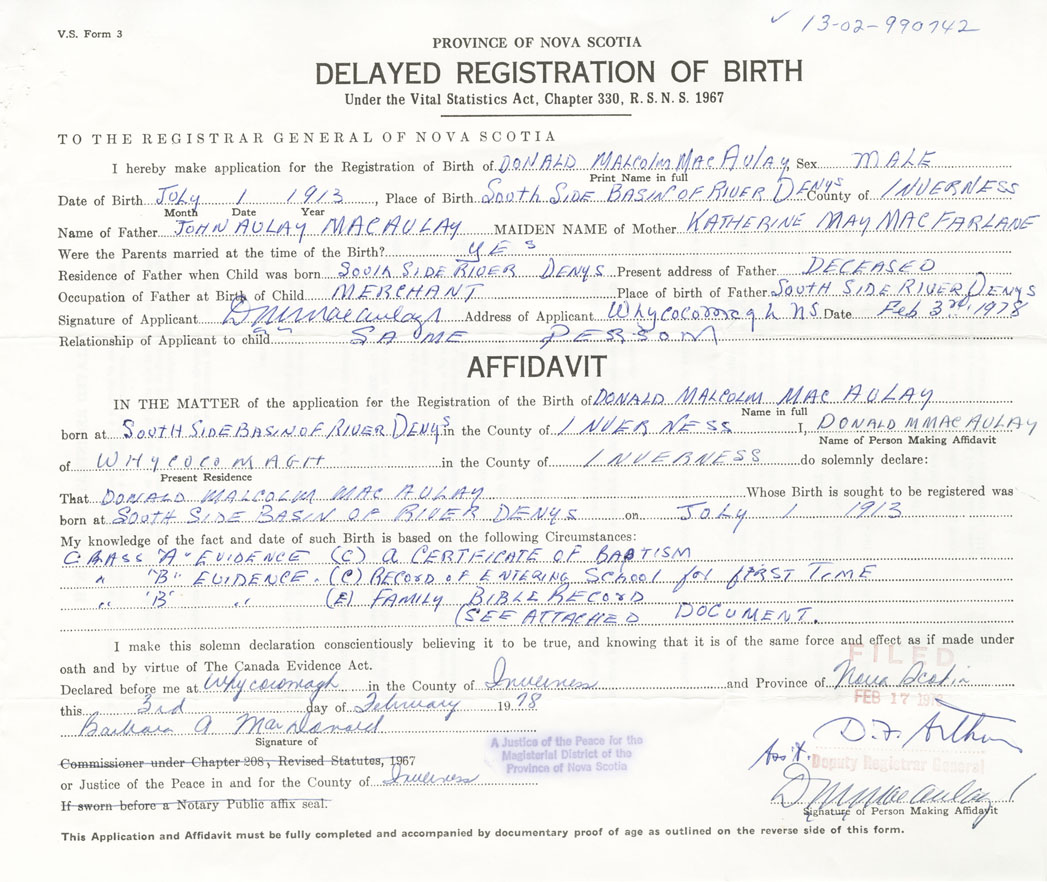 V.S. Form 3
✓ 13-02-990742
PROVINCE OF NOVA SCOTIA
DELAYED REGISTRATION OF BIRTH
Under the Vital Statistics Act, Chapter 330, R. S. N. S. 1967
TO THE REGISTRAR GENERAL OF NOVA SCOTIA
I hereby make application for the Registration of Birth of DONALD MALCOLM MACAULAY Sex MALE
Print Name in full
Date of Birth JULY 1 1913, Place of Birth SOUTH SIDE BASIN OF RIVER DENYS County of INVERNESS
Month Date Year
Name of Father JOHN AULAY MACAULAY MAIDEN NAME of Mother KATHERINE MAY MACFARLANE
Were the Parents married at the time of the Birth? YES
Residence of Father when Child was born SOUTH SIDE RIVER DENYS Present address of Father DECEASED
Occupation of Father at Birth of Child MERCHANT Place of birth of Father SOUTH SIDE RIVER DENYS
Signature of Applicant D M MacAulay Address of Applicant Whycocomagh NS Date Feb 3rd, 1978
Relationship of Applicant to child SAME PERSON
AFFIDAVIT
IN THE MATTER of the application for the Registration of the Birth of DONALD MALCOLM MACAULAY
Name in full
born at SOUTH SIDE BASIN OF RIVER DENYS in the County of INVERNESS I, DONALD M MACAULAY
Name of Person Making Affidavit
of WHYCOCOMAGH in the County of INVERNESS do solemnly declare:
Present Residence
That DONALD MALCOLM MACAULAY Whose Birth is sought to be registered was
born at SOUTH SIDE BASIN OF RIVER DENYS on JULY 1 1913
My knowledge of the fact and date of such Birth is based on the following Circumstances:
CLASS "A" EVIDENCE (C) A CERTIFICATE OF BAPTISM
" "B" EVIDENCE. (C) RECORD OF ENTERING SCHOOL for FIRST TIME
" "B" " (E) FAMILY BIBLE RECORD
(SEE ATTACHED DOCUMENT.
I make this solemn declaration conscientiously believing it to be true, and knowing that it is of the same force and effect as if made under
oath and by virtue of The Canada Evidence Act.
FILED
Declared before me at Whycocomagh in the County of Inverness and Province of Nova Scotia
FEB 17
this 3rd day of February 1978
Barbara A MacDonald
Signature of
D.F. Arthur
Ass't. Deputy Registrar General
A Justice of the Peace for the
Magisterial District of the
Province of Nova Scotia
Commissioner under Chapter 208, Revised Statutes, 1967
or Justice of the Peace in and for the County of Inverness
If sworn before a Notary Public affix seal.
D M MacAulay
Signature of Person Making Affidavit
This Application and Affidavit must be fully completed and accompanied by documentary proof of age as outlined on the reverse side of this form.